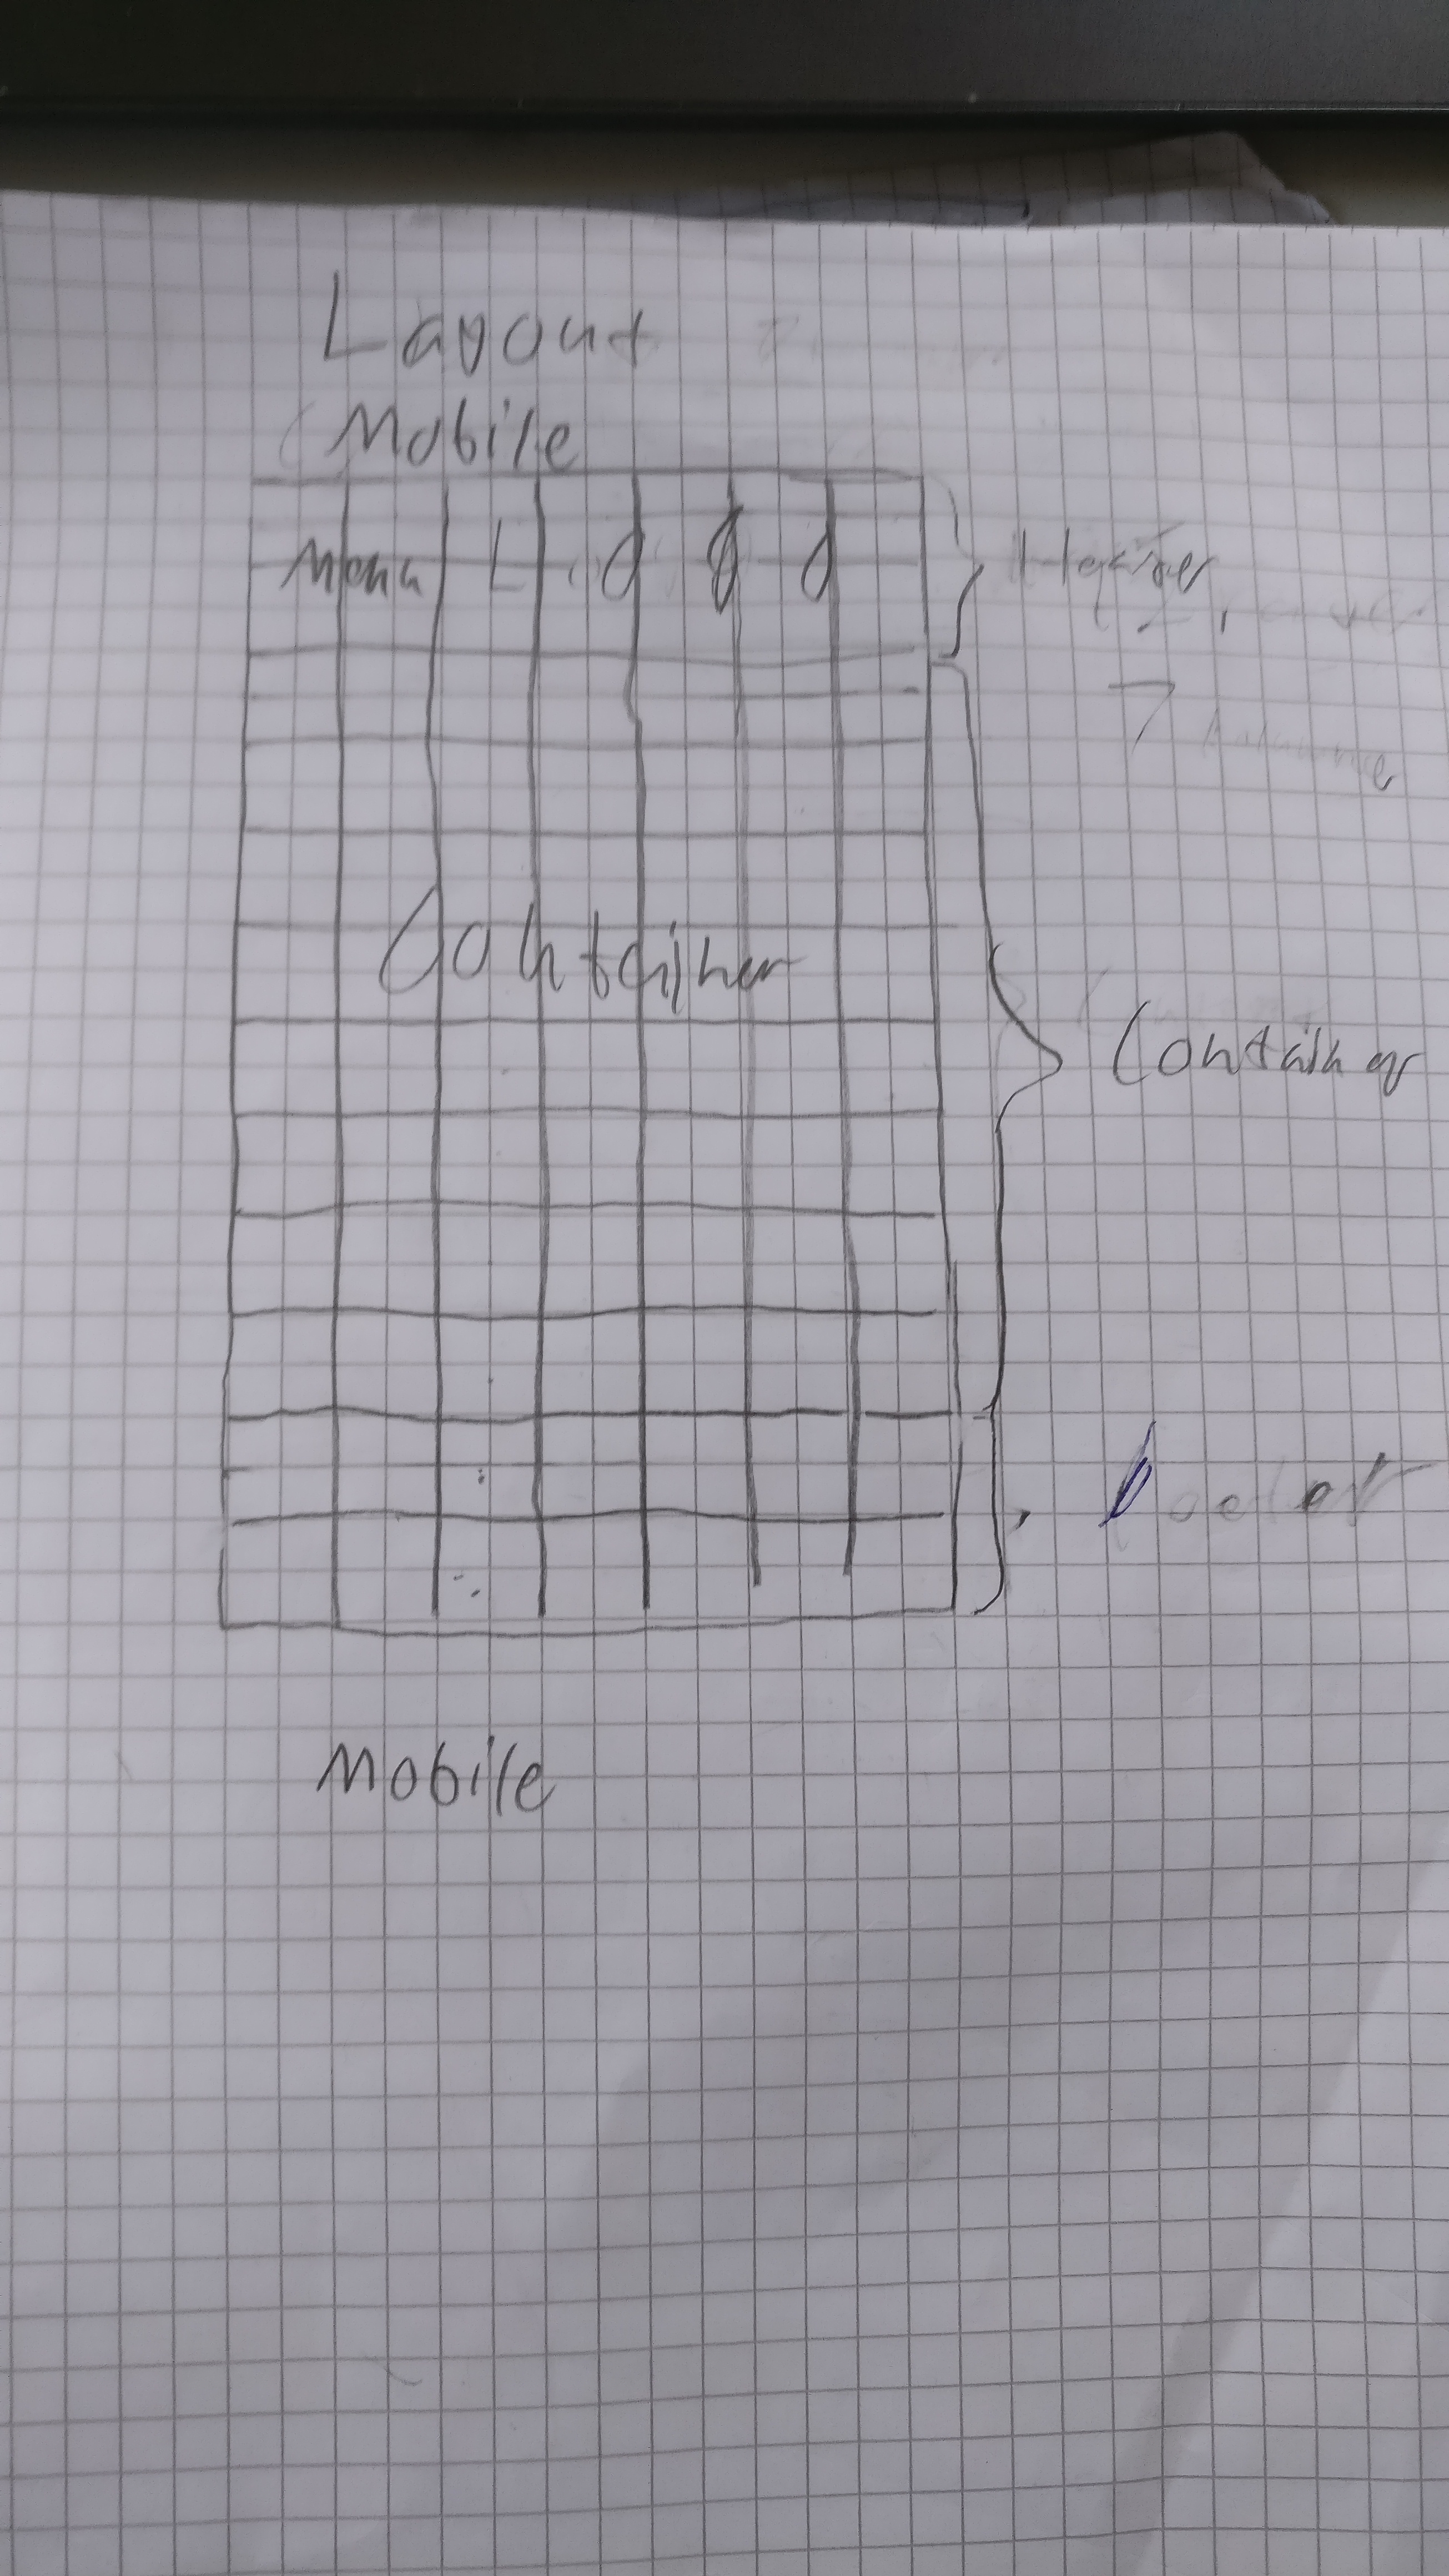 Layout
Mobile
Menu L o g o
Header
7
Container
Container
Mobile